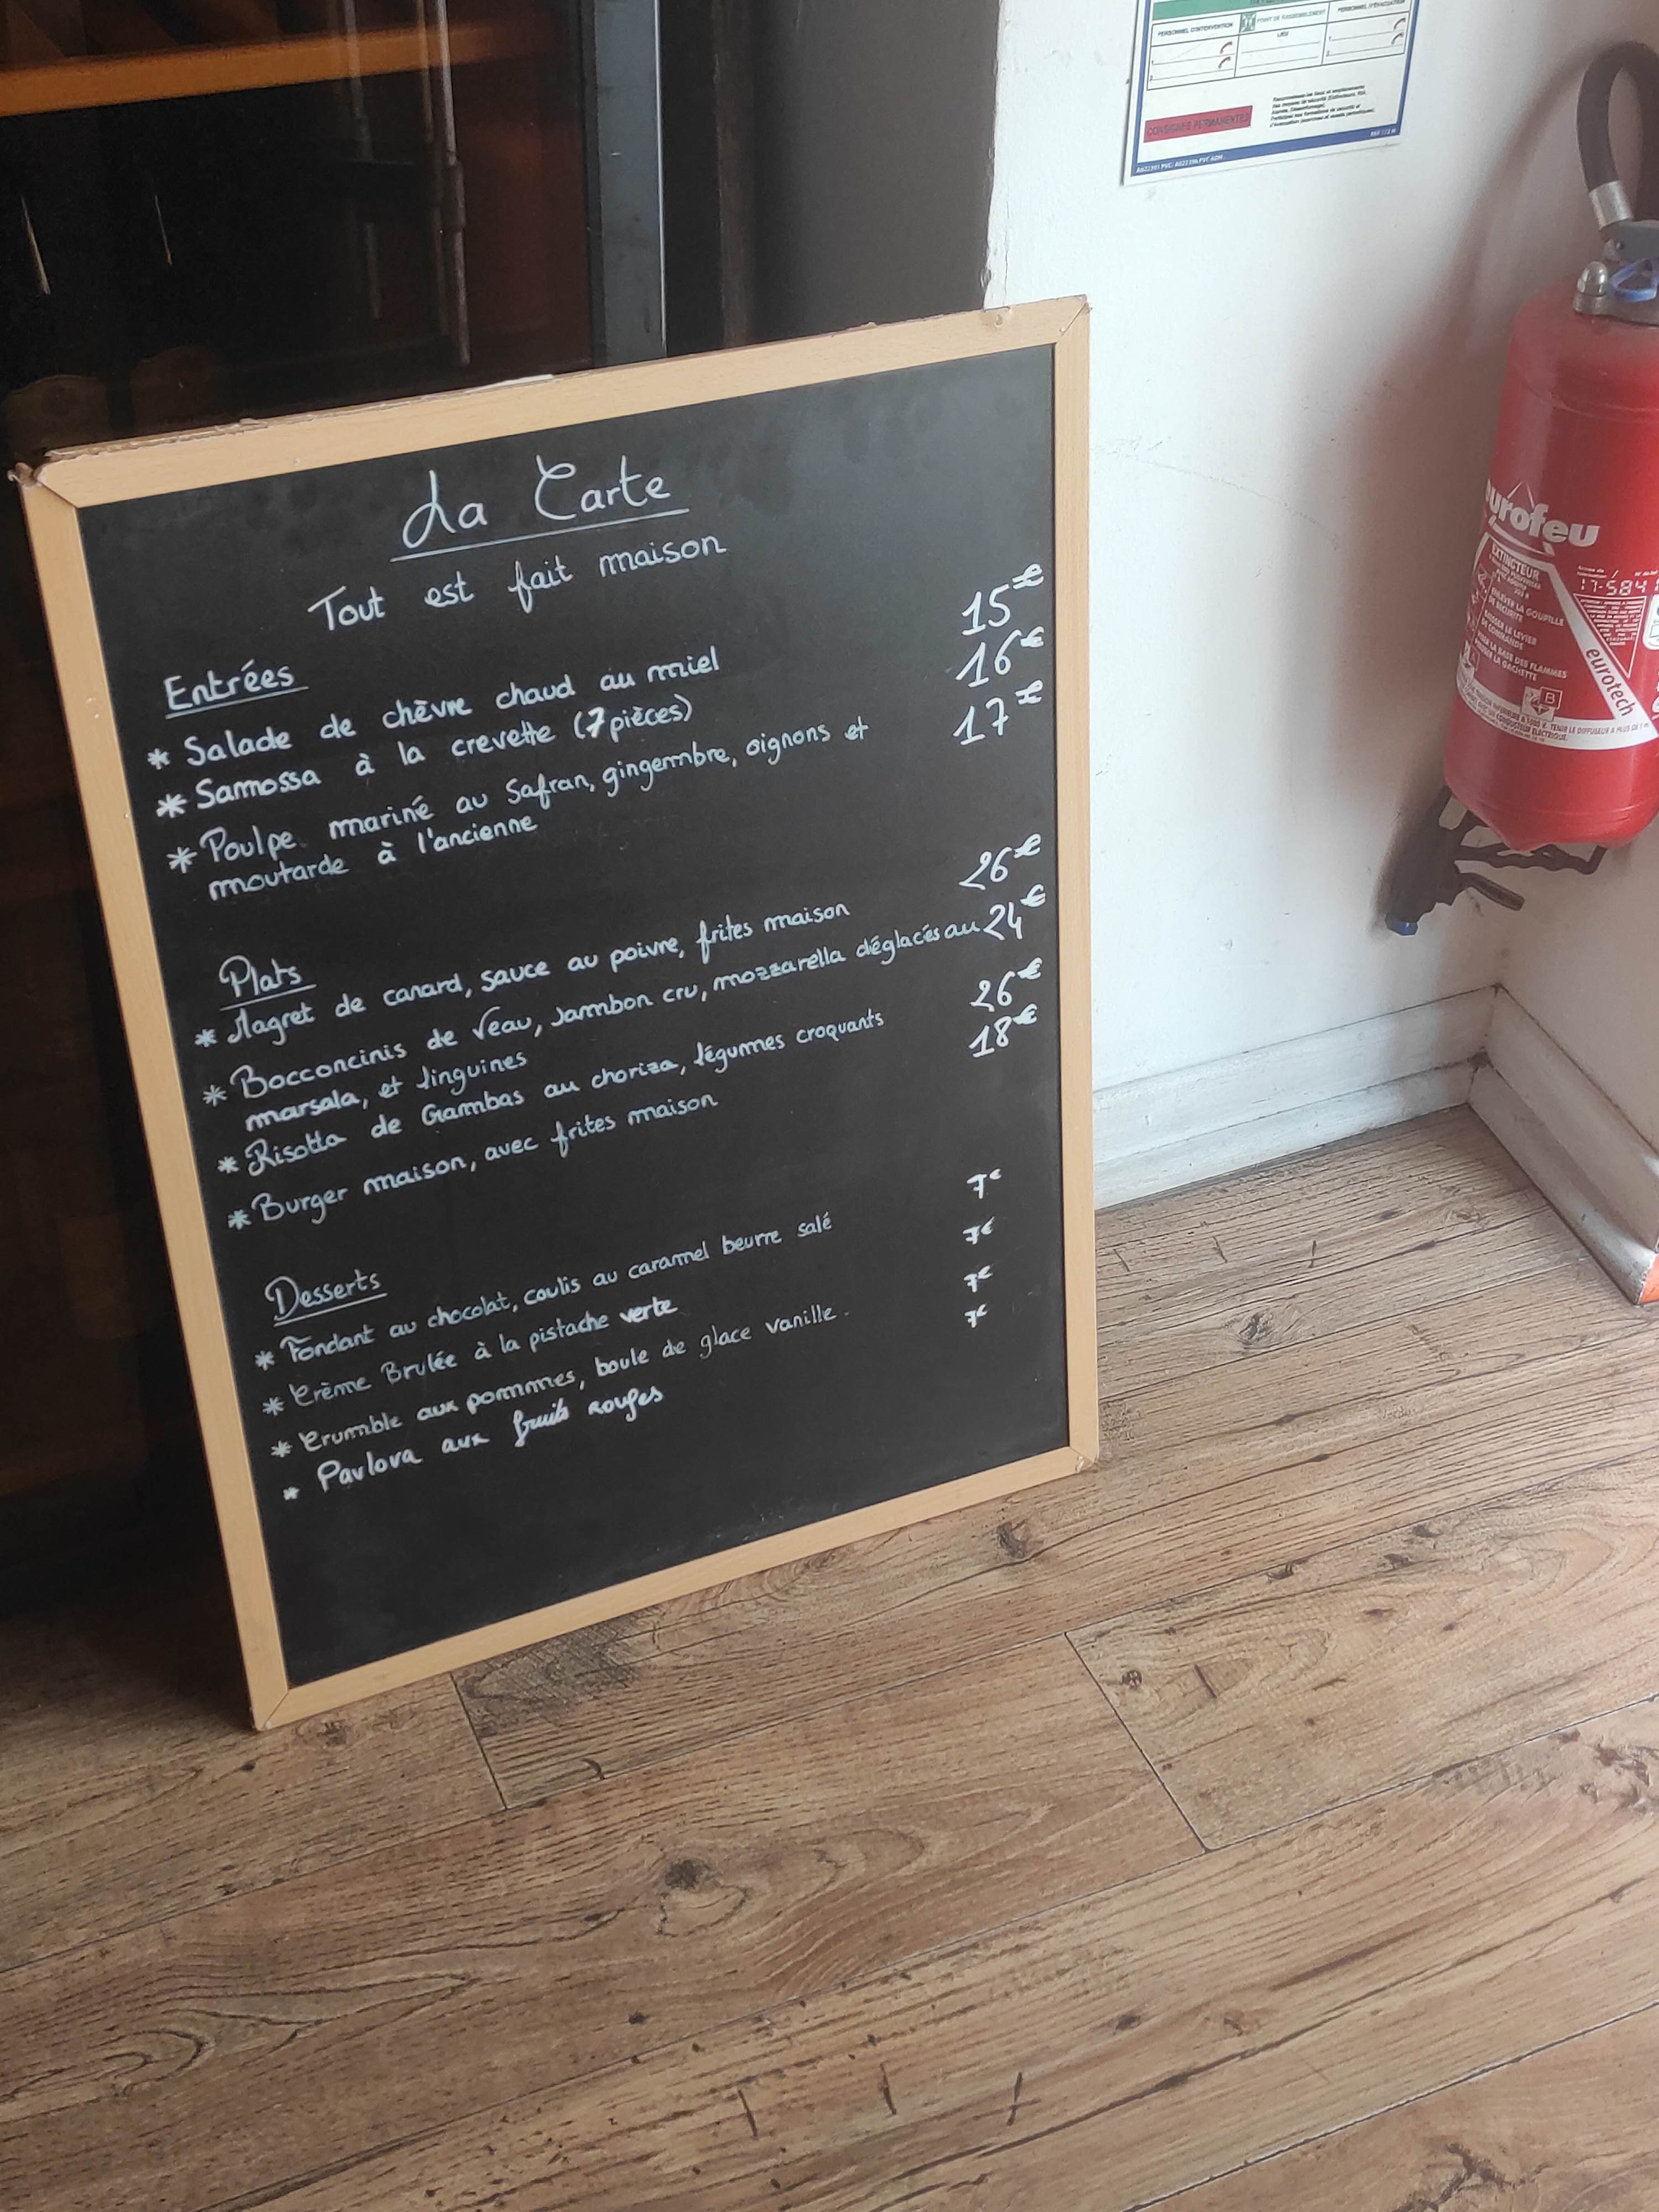 La Carte
Tout est fait maison
Entrées
* Salade de chèvre chaud au miel 15€
* Samossa à la crevette (7 pièces) 16€
* Poulpe mariné au Safran, gingembre, oignons et 17€
moutarde à l'ancienne
Plats
* Magret de canard, sauce au poivre, frites maison 26€
* Bocconcinis de Veau, Jambon cru, mozzarella déglacés au 24€
marsala, et linguines
* Risotto de Gambas au chorizo, légumes croquants 26€
* Burger maison, avec frites maison 18€
Desserts
* Fondant au chocolat, coulis au caramel beurre salé 7€
* Crème Brulée à la pistache verte 7€
* Crumble aux pommes, boule de glace vanille. 7€
* Pavlova aux fruits rouges 7€
PERSONNEL D'INTERVENTION
POINT DE RASSEMBLEMENT
LIEU
PERSONNEL D'ÉVACUATION
CONSIGNES PERMANENTES
eurofeu
EXTINCTEUR
17-584
eurotech
B